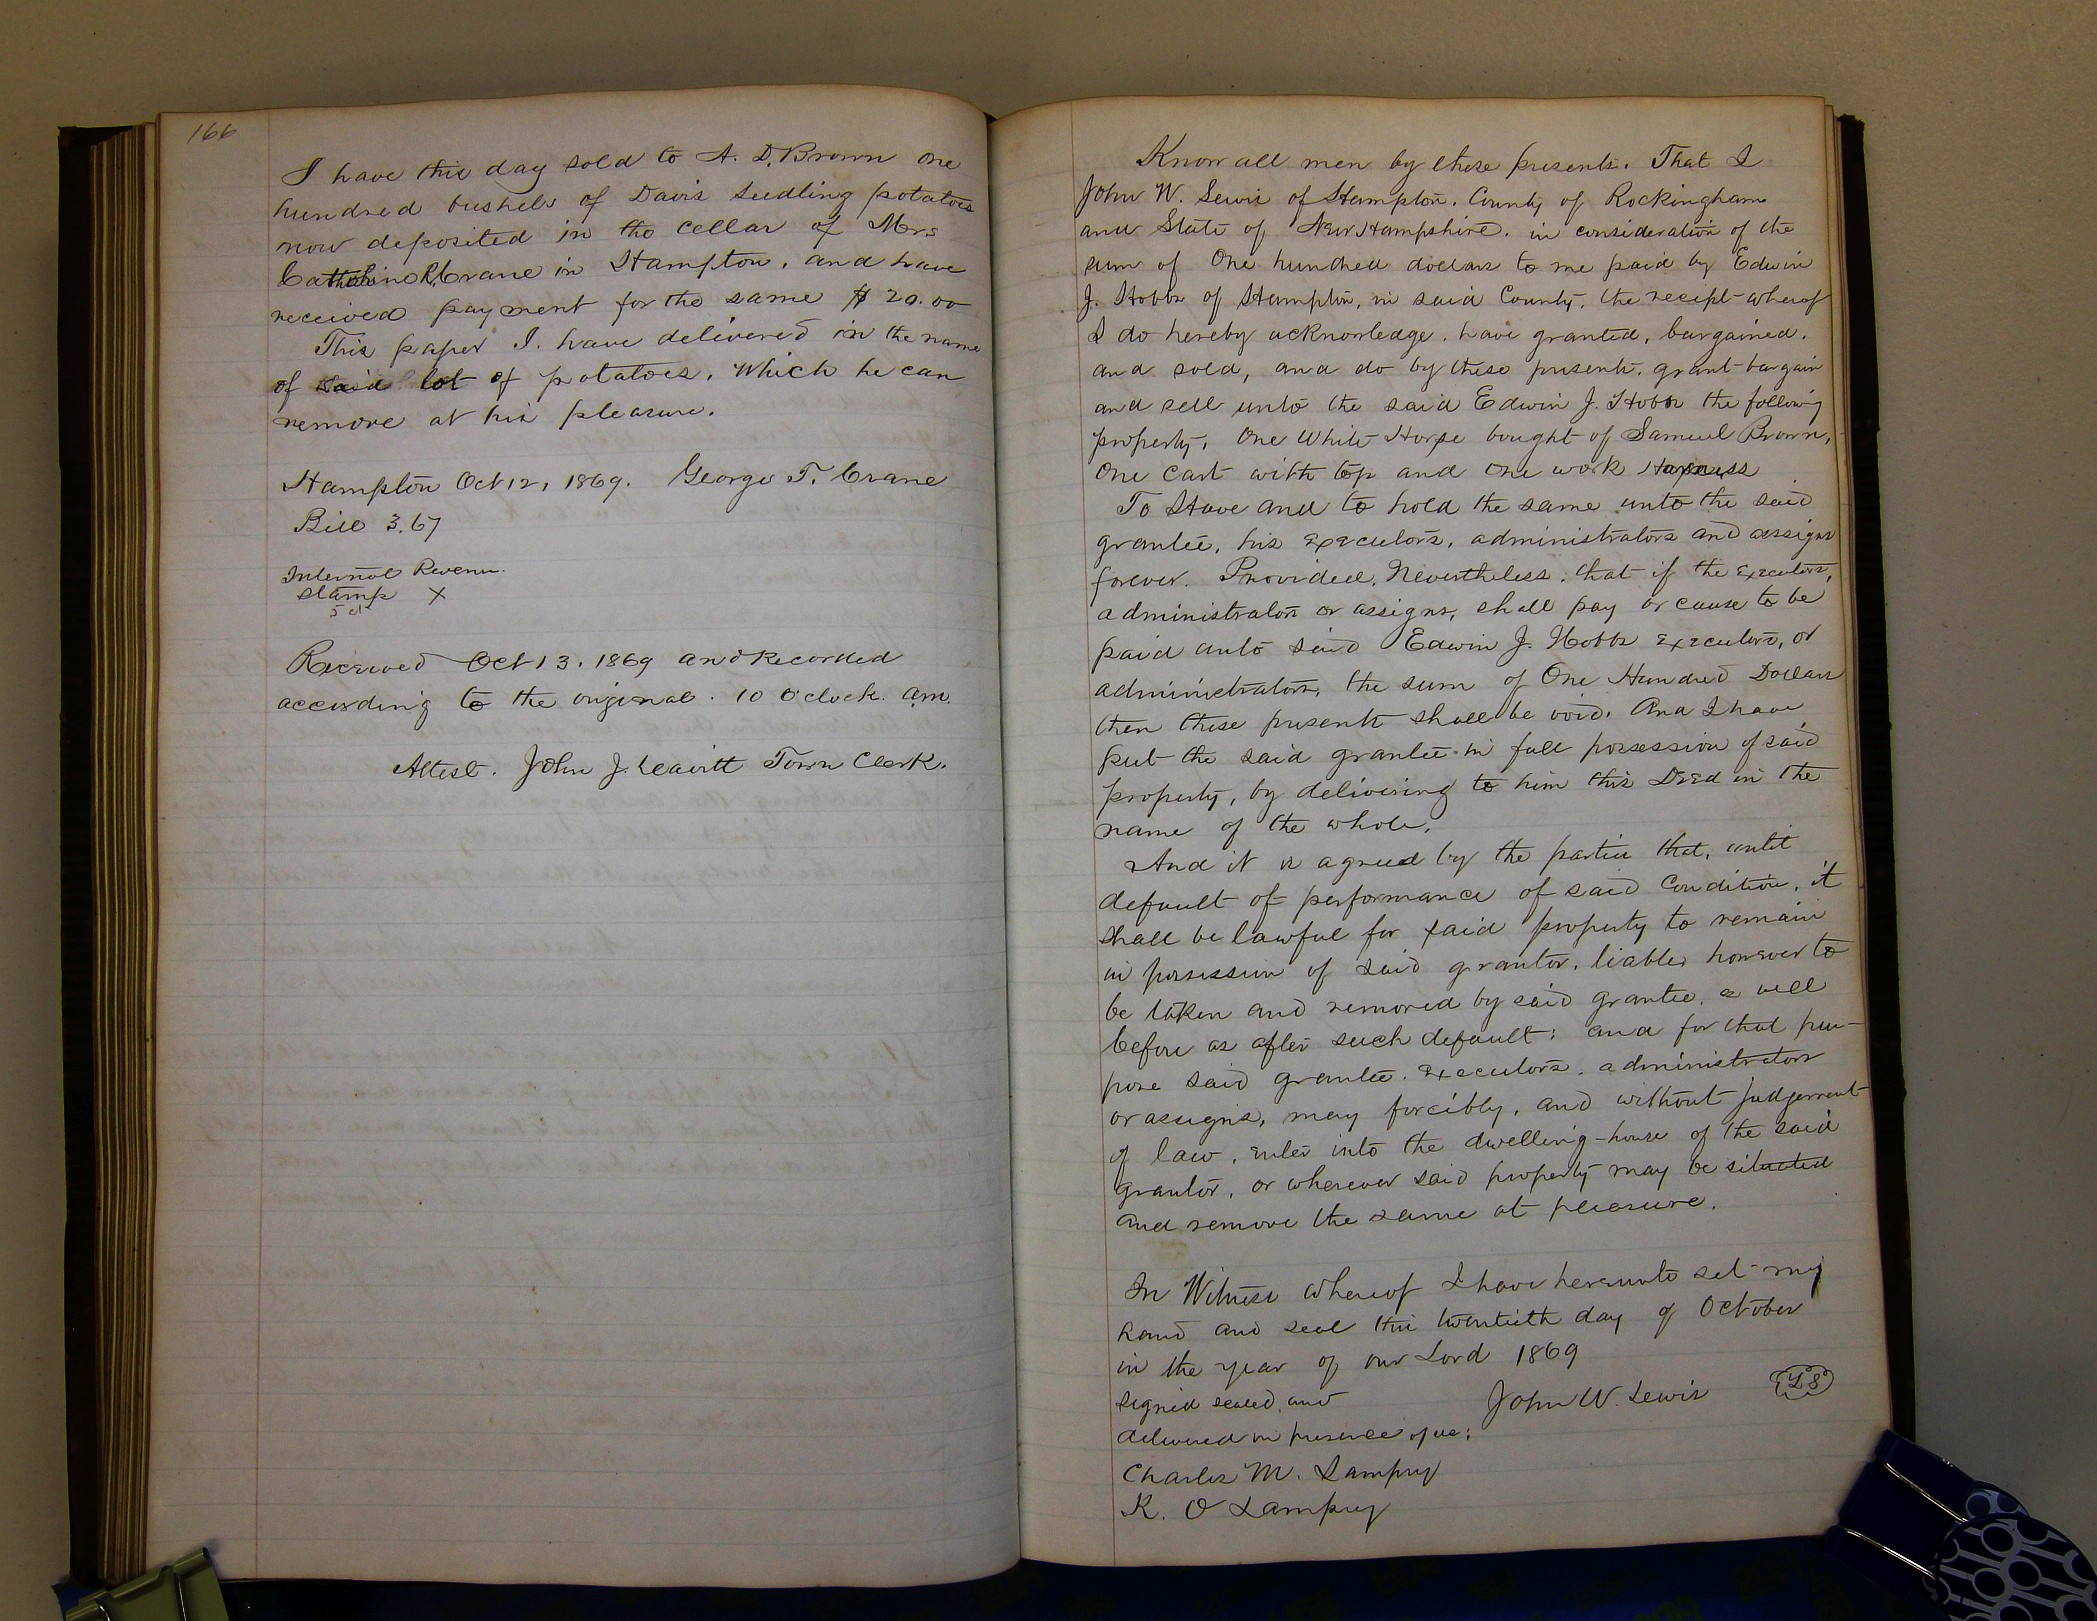 166
I have this day sold to A. D. Brown one
hundred bushels of Davis Seedling potatoes
now deposited in the cellar of Mrs
Catharine R. Crane in Hampton, and have
received payment for the same $ 20.00
This paper I. have delivered in the name
of said lot of potatoes, Which he can
remove at his pleasure.
Hampton Oct 12, 1869. George T. Crane
Bill 3.67
Internal Revenu
Stamp X
5 ct
Received Oct 13. 1869 and Recorded
according to the original. 10 O'clock. a.m.
Attest. John J. Leavitt Town Clerk.
Know all men by these presents. That I
John W. Lewis of Hampton. County of Rockingham
and State of New Hampshire. in consideration of the
sum of One hundred dollars to me paid by Edwin
J. Hobbs of Hampton, in said County, the receipt whereof
I do hereby acknowledge. have granted, bargained.
and sold, and do by these presents. grant bargain
and sell unto the said Edwin J. Hobbs the following
property, One White Horse bought of Samuel Brown,
One Cart with top and one work Harness
To Have and to hold the same unto the said
grantee, his executors, administrators and assigns
forever. Provided, Nevertheless, that if the executors,
administrators or assigns, shall pay or cause to be
paid unto said Edwin J. Hobbs executors, or
administrators, the sum of One Hundred Dollars
then these presents shall be void. And I have
put the said grantee in full possession of said
property, by delivering to him this Deed in the
name of the whole.
And it is agreed by the parties that, until
default of performance of said Condition, it
shall be lawful for said property to remain
in possession of said grantor, liable, however to
be taken and removed by said grantee, as well
before as after such default: and for that pur-
pose said grantee. executors. administrators
or assigns, may forcibly, and without judgement
of law, enter into the dwelling-house of the said
grantor, or wherever said property may be situated
and remove the same at pleasure.
In Witness whereof I have hereunto set my
hand and seal this twentieth day of October
in the year of our Lord 1869
signed sealed, and John W. Lewis L S
delivered in presence of us;
Charles M. Lamprey
K. O Lamprey